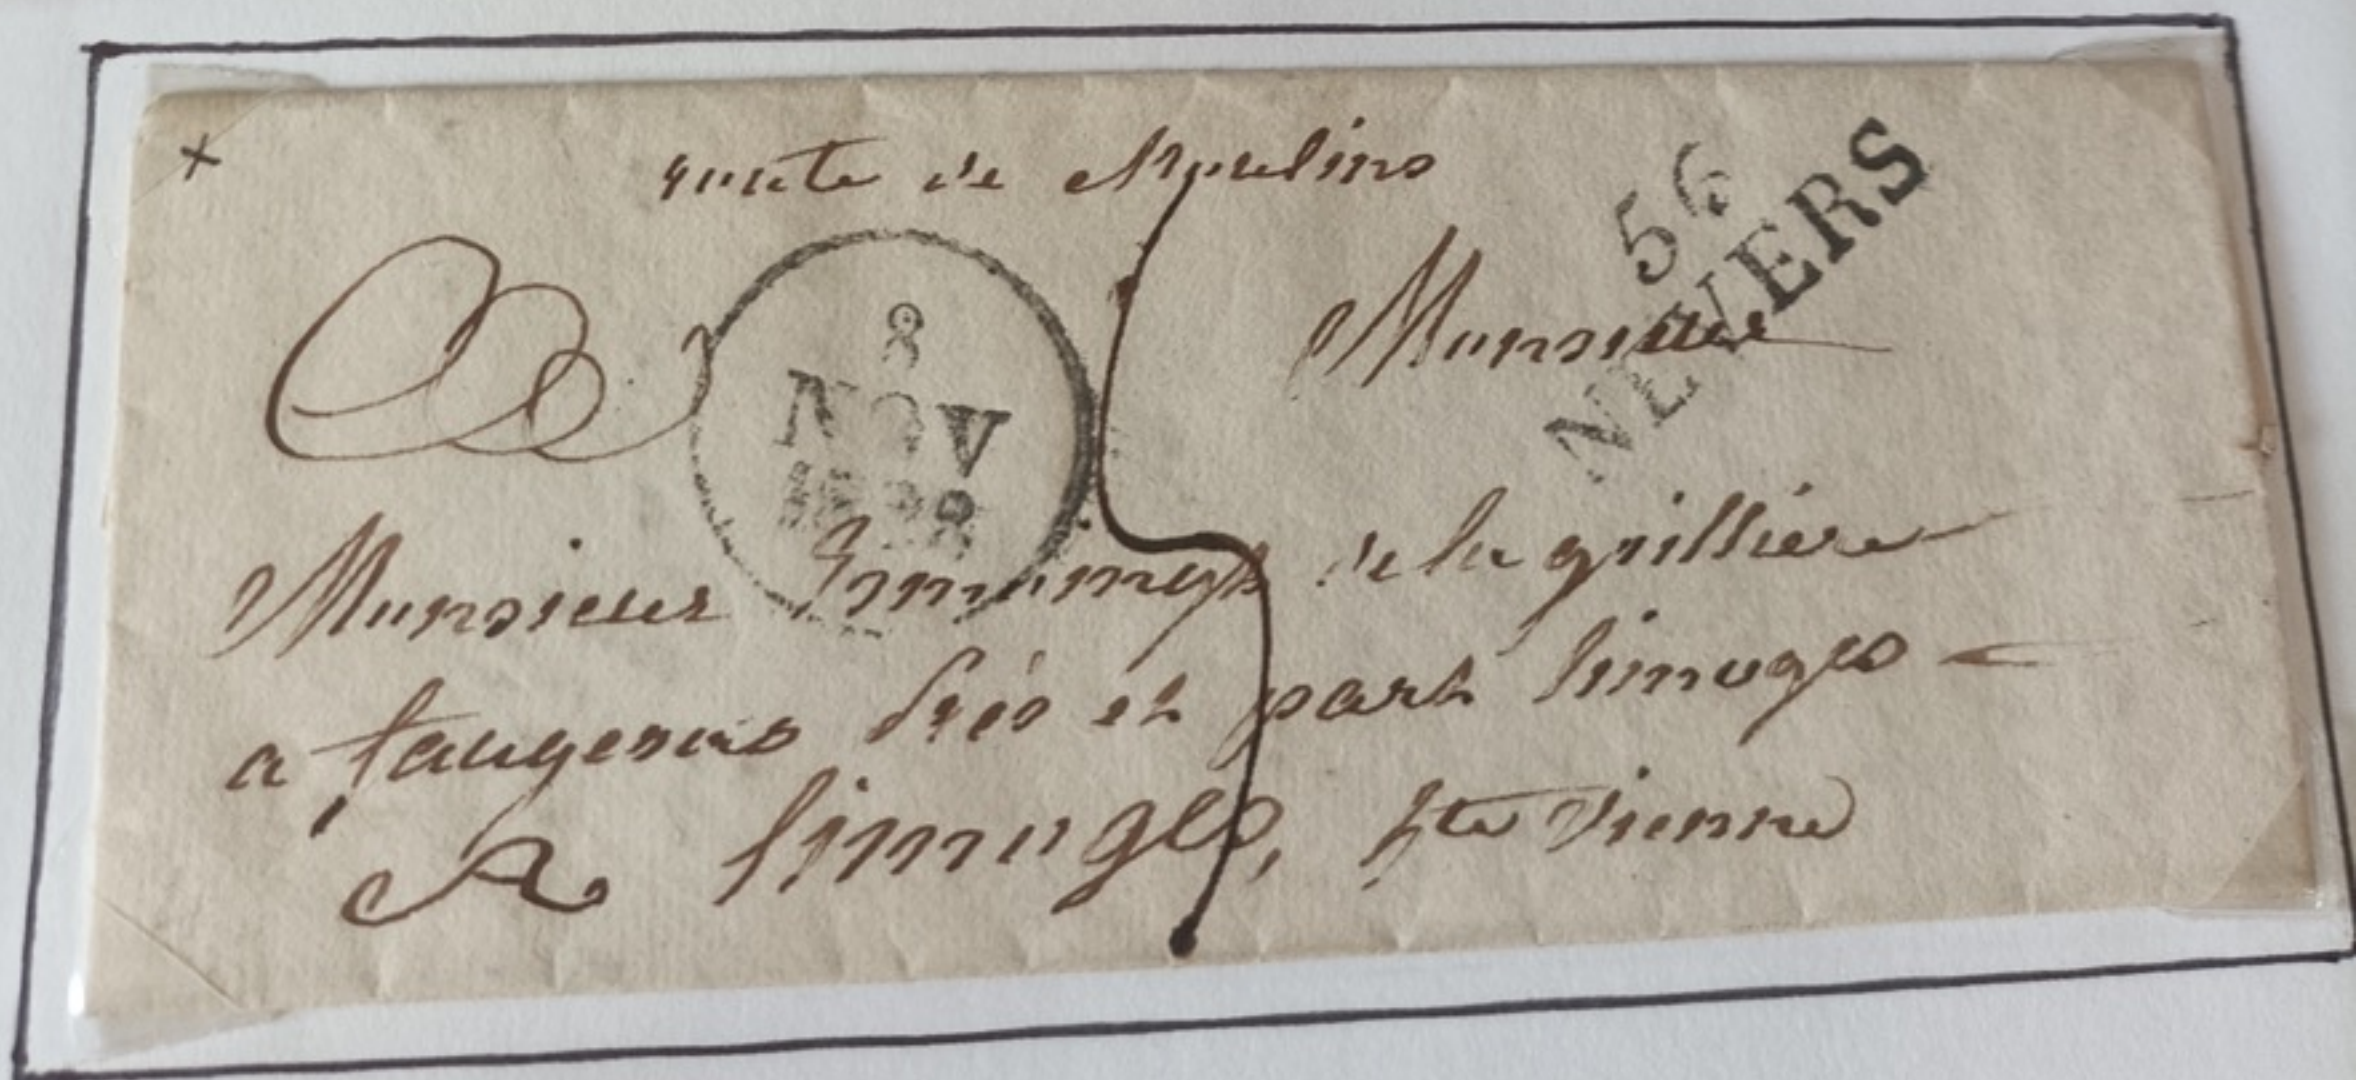 route de Moulins
56
NEVERS
8
NOV
1828
Monsieur
Monsieur de la grillière
a faugeras Près et par Limoges
A Limoges, hte Vienne